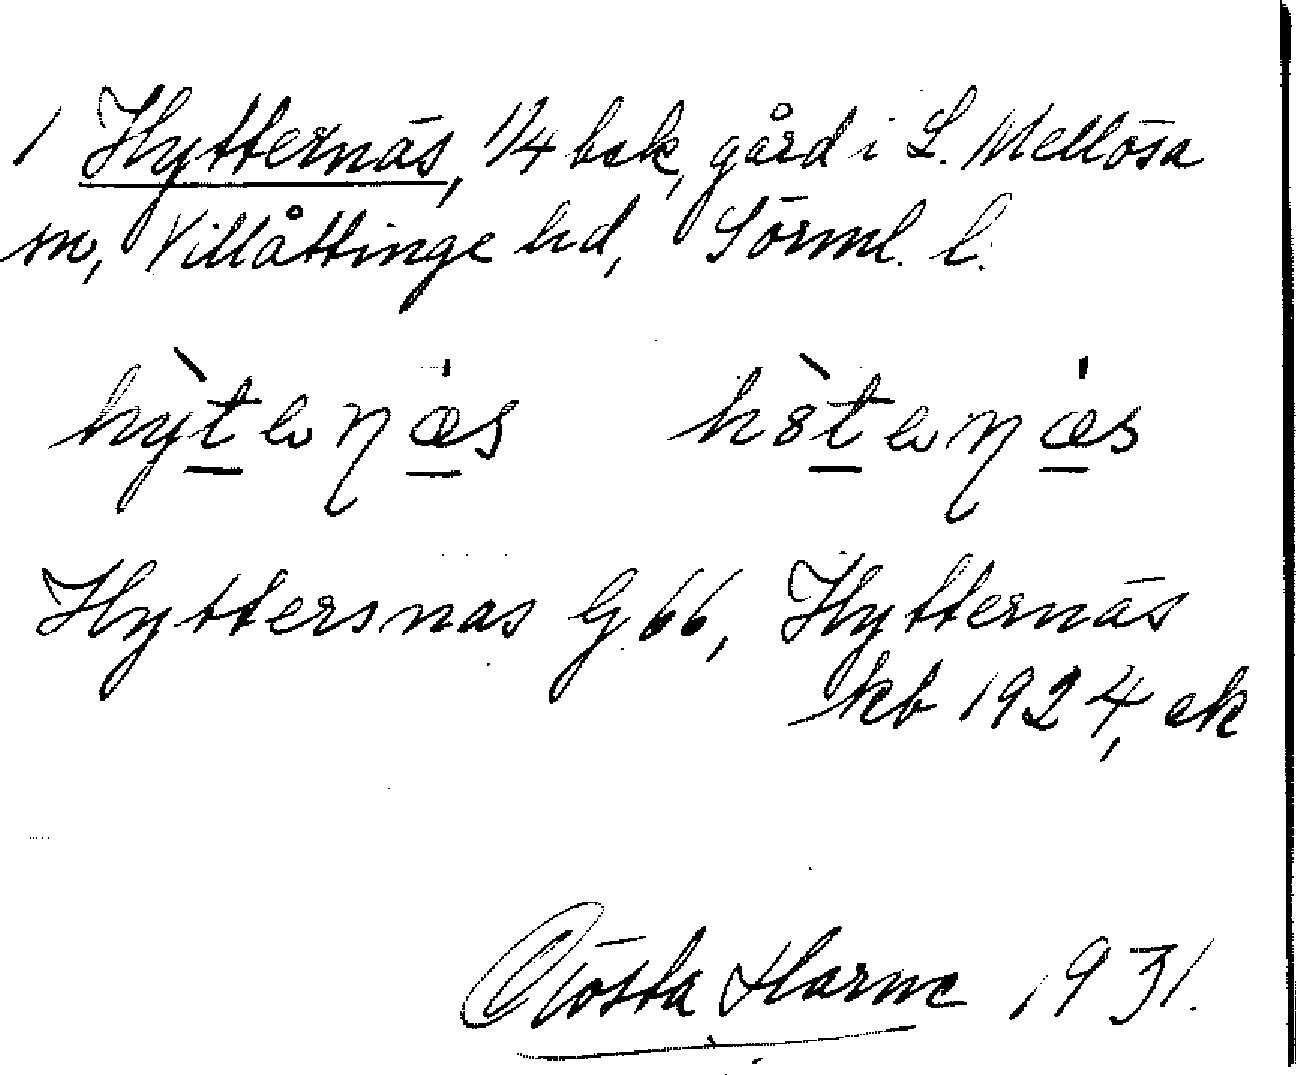 1 Hytternäs, 1/4 bsk, gård i L. Mellösa
sn, Villåttinge hd, Sörml. l.
hỳtenæ̍s hòtenæ̍s
Hyttersnas G 66, Hytternäs
kb 1924, ek
Gösta Harme 1931.